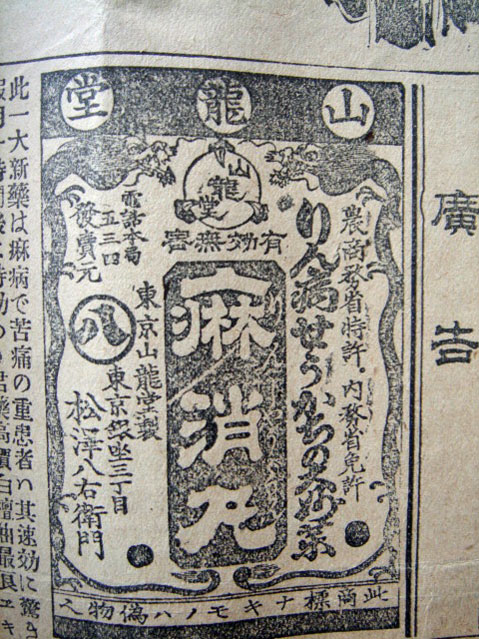 廣告
山龍堂
山龍堂
有効無害
農商務省特許。内務省免許
りん病せうかちの大妙薬
痳消丸
東京山龍堂製
電話本局
五三四
發賣元
八
東京銀座三丁目
松澤八右衛門
此商標ナキモノハ偽物
此一大新藥は痳病で苦痛の重患者ハ其速効に驚